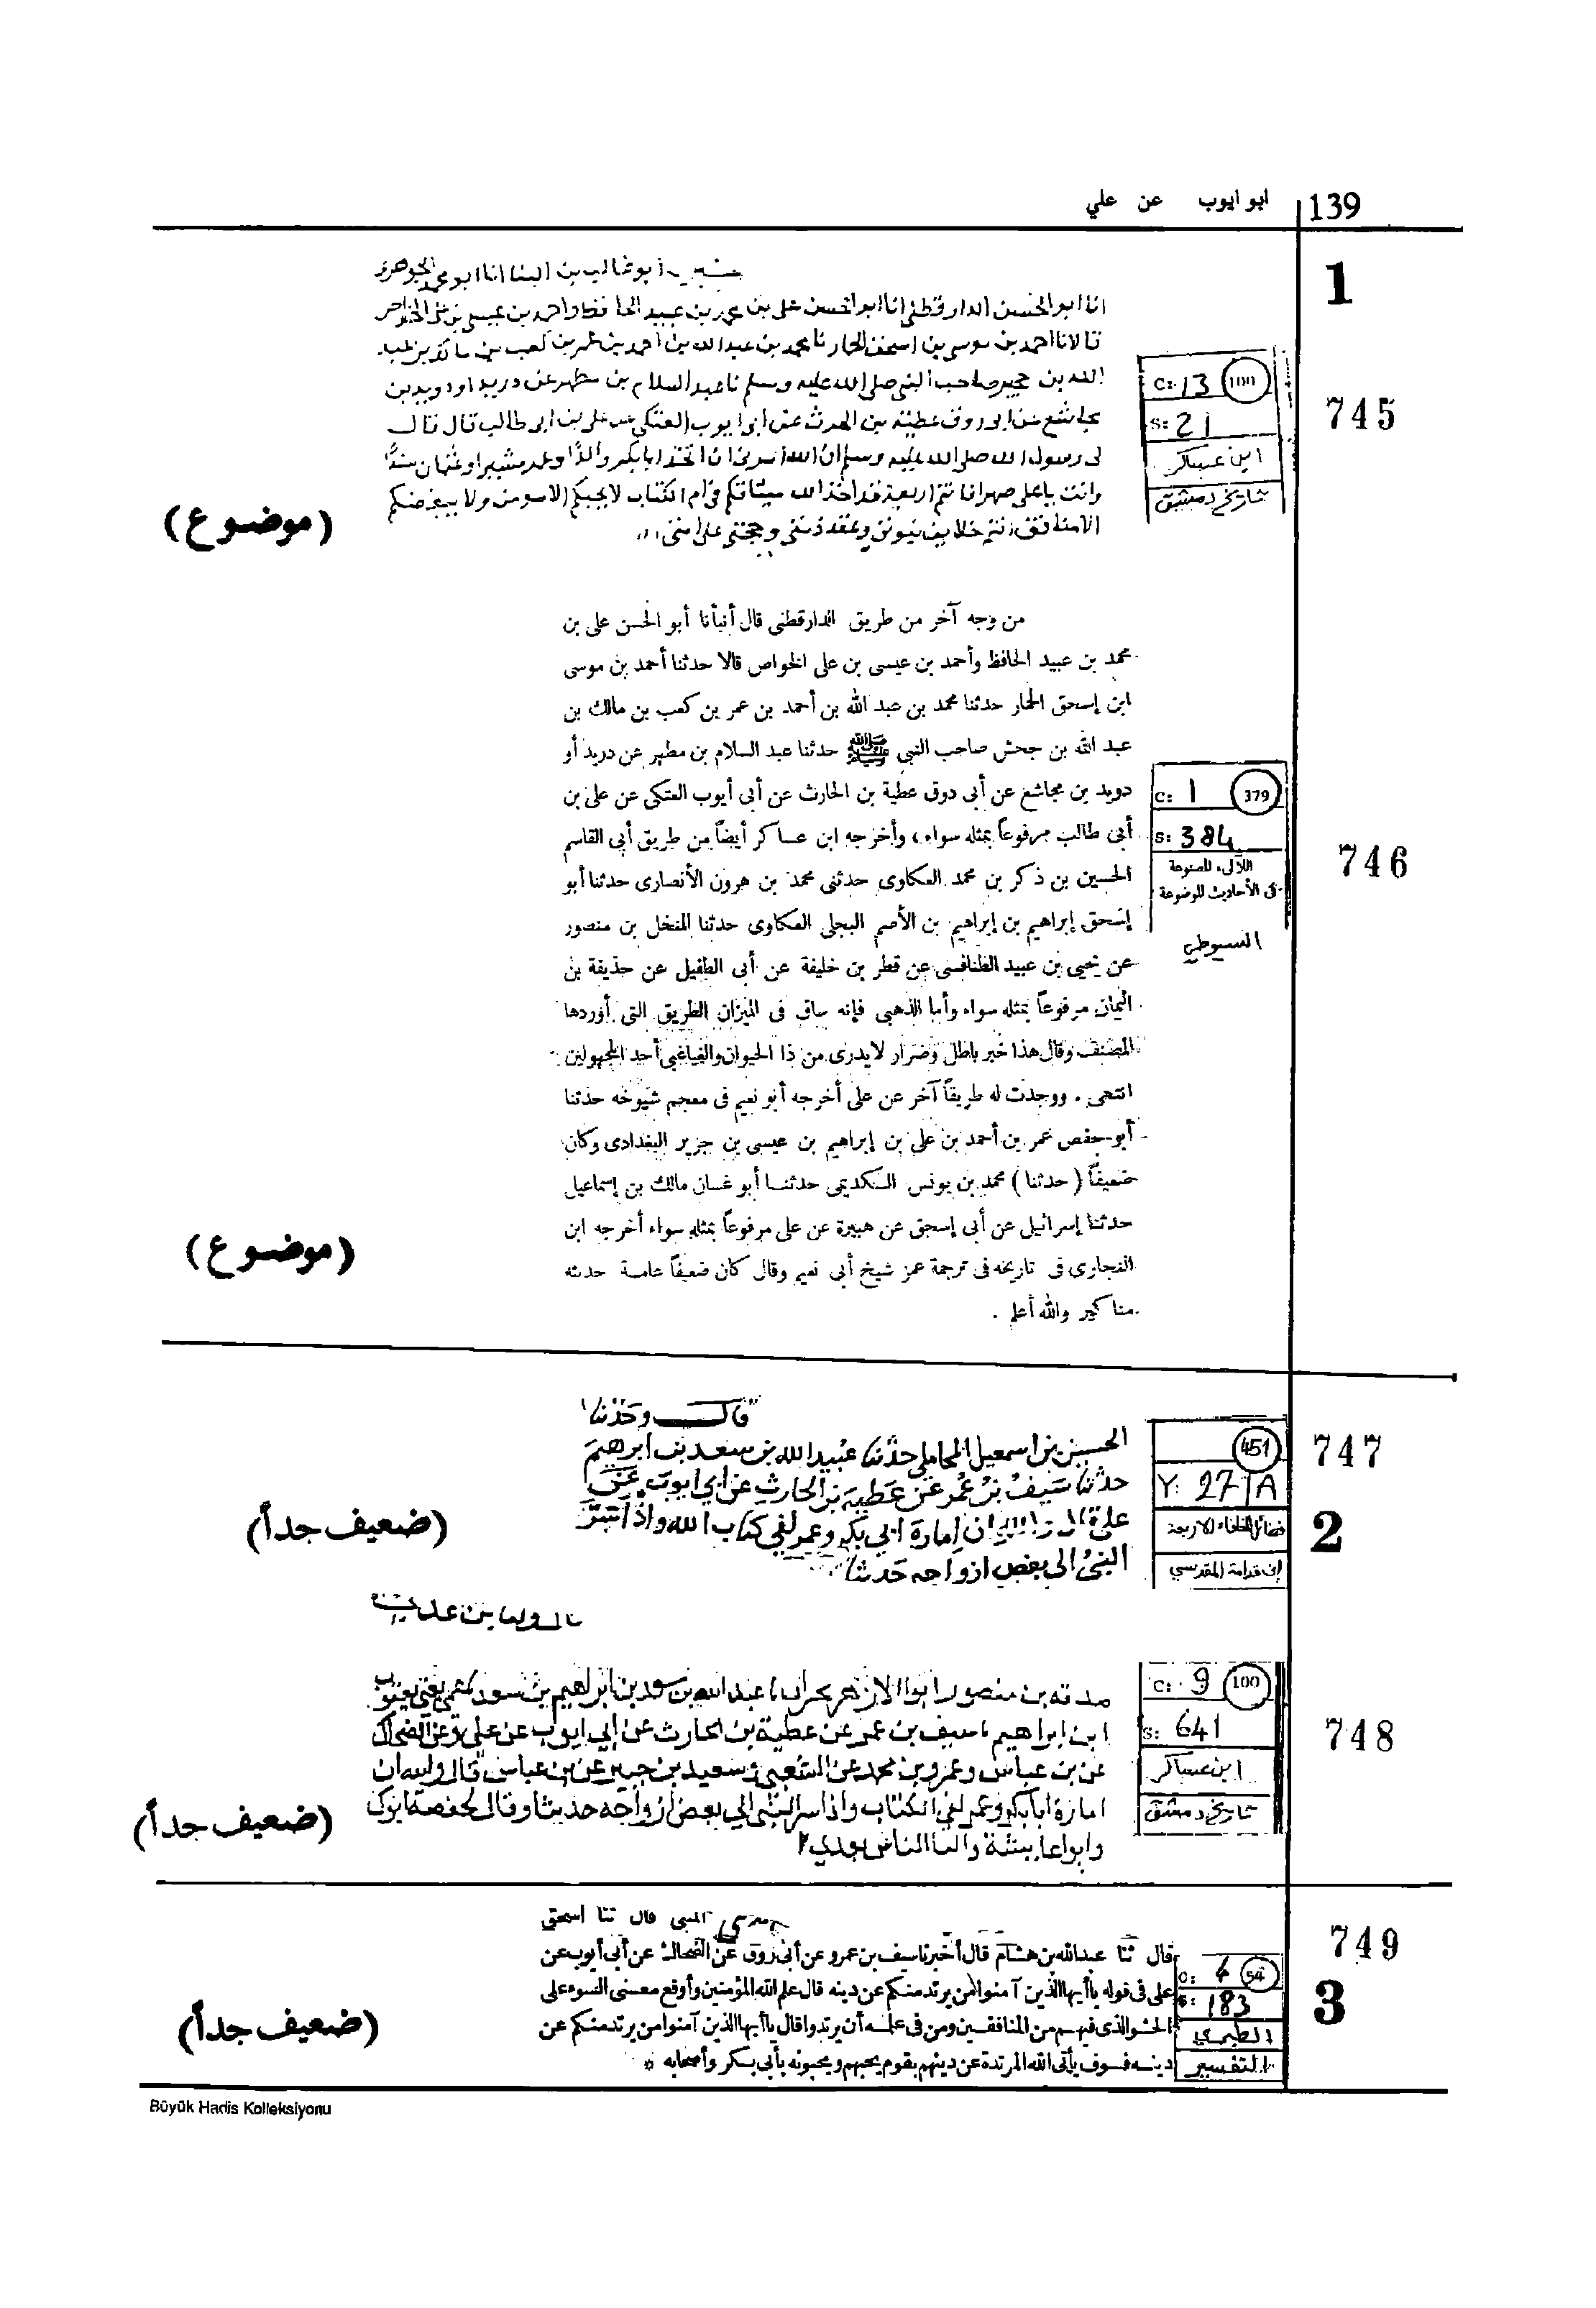 139
ابو ايوب عن علي
1
اخبرنا ابو غالب بن البنا انا ابو محمد الجوهري
انا ابو الحسن الدارقطني انا ابو الحسن علي بن محمد بن عبيد الحافظ واحمد بن عيسى بن علي الخواص
قالا نا احمد بن موسى بن اسحق الحمار نا محمد بن عبد الله بن احمد بن عمر بن كعب بن مالك بن عبد
الله بن جحش صاحب النبي صلى الله عليه وسلم نا عبد السلام بن مطهر عن دريد او دويد بن
مجاشع عن ابي روق عطية بن الحرث عن ابي ايوب العتكي عن علي بن ابي طالب قال قال
لي رسول الله صلى الله عليه وسلم ان الله امرني ان اتخذ ابا بكر والدا وعمر مشيرا وعثمان سندا
وانت يا علي صهرا فانتم اربعة قد اخذ الله ميثاقكم في ام الكتاب لا يحبكم الا مومن ولا يبغضكم
الا منافق انتم خلايف نبوتي وعقد ذمتي وحجتي على امتي
(موضوع)
C: 13 100
S: 21
ابن عساكر
تاريخ دمشق
745
من وجه آخر من طريق الدارقطنى قال أنبأنا أبو الحسن على بن
محمد بن عبيد الحافظ وأحمد بن عيسى بن على الخواص قالا حدثنا أحمد بن موسى
ابن إسحق الحمار حدثنا محمد بن عبد الله بن أحمد بن عمر بن كعب بن مالك بن
عبد الله بن جحش صاحب النبي ﷺ حدثنا عبد السلام بن مطهر عن دريد أو
دويد بن مجاشع عن أبى دوق عطية بن الحارث عن أبى أيوب العتكى عن على بن
أبى طالب مرفوعاً بمثله سواء، وأخرجه ابن عساكر أيضاً من طريق أبى القاسم
الحسين بن ذكر بن محمد العكاوى حدثنى محمد بن هرون الأنصارى حدثنا أبو
إسحق إبراهيم بن إبراهيم بن الأصم البجلى العكاوى حدثنا المنخل بن منصور
عن يحيى بن عبيد الطنافسى عن قطر بن خليفة عن أبى الطفيل عن حذيفة بن
اليمان مرفوعاً بمثله سواء وأما الذهبى فإنه ساق فى الميزان الطريق التى أوردها
المصنف وقال هذا خبر باطل وضرار لا يدرى من ذا الحيوان والغباغبى أحد المجهولين
انتهى. ووجدت له طريقاً آخر عن على أخرجه أبو نعيم فى معجم شيوخه حدثنا
أبو حفص عمر بن أحمد بن على بن إبراهيم بن عيسى بن جرير البغدادى وكان
ضعيفاً (حدثنا) محمد بن يونس الكديمى حدثنا أبو غسان مالك بن إسماعيل
حدثنا إسرائيل عن أبى إسحق عن هبيرة عن على مرفوعاً بمثله سواء أخرجه ابن
النجارى فى تاريخه فى ترجمة عمر شيخ أبى نعيم وقال كان ضعيفاً عامة حدثه
مناكير والله أعلم.
(موضوع)
C: 1 379
S: 384
اللآلىء المصنوعة
فى الأحاديث الموضوعة
السيوطي
746
قال وحدثنا
الحسين بن اسمعيل المحاملي حدثنا عبيد الله بن سعد بن ابرهيم
حدثنا سيف بن عمر عن عطية بن الحارث عن ابي ايوب عن
علي قال والله ان امارة ابي بكر وعمر لفي كتاب الله واذ اسر
النبي الى بعض ازواجه حديثا
(ضعيف جداً)
451
Y: 27/A
فضائل الخلفاء الاربعة
ابن قدامة المقدسي
747
2
بن عدي
صدقة بن منصور ابو الازهر بحران نا عبد الله بن سعد بن ابراهيم بن سعد نا عمي يعني يعقوب
ابن ابراهيم نا سيف بن عمر عن عطية بن الحارث عن ابي ايوب عن علي وعن الضحاك
عن بن عباس وعمرو بن محمد عن الشعبي وسعيد بن جبير عن بن عباس قال والله ان
امارة ابا بكر وعمر لفي الكتاب واذ اسر النبي الى بعض ازواجه حديثا وقال لحفصة ابوك
وابو عايشة واليا الناس بعدي
(ضعيف جداً)
C: 9 100
S: 641
ابن عساكر
تاريخ دمشق
748
المثنى قال ثنا اسحق
قال ثنا عبد الله بن هشام قال أخبرنا سيف بن عمرو عن أبى روق عن الضحاك عن أبى أيوب عن
على فى قوله يا أيها الذين آمنوا من يرتد منكم عن دينه قال علم الله المؤمنين وأوقع معنى السوء على
الحشو الذى فيهم من المنافقين ومن فى علمه أن يرتدوا قال يا أيها الذين آمنوا من يرتد منكم عن
دينه فسوف يأتى الله المرتدة عن دينهم بقوم يحبهم ويحبونه بأبى بكر وأصحابه
(ضعيف جداً)
C: 4 54
S: 183
الطبري
التفسير
749
3
Büyük Hadis Kolleksiyonu